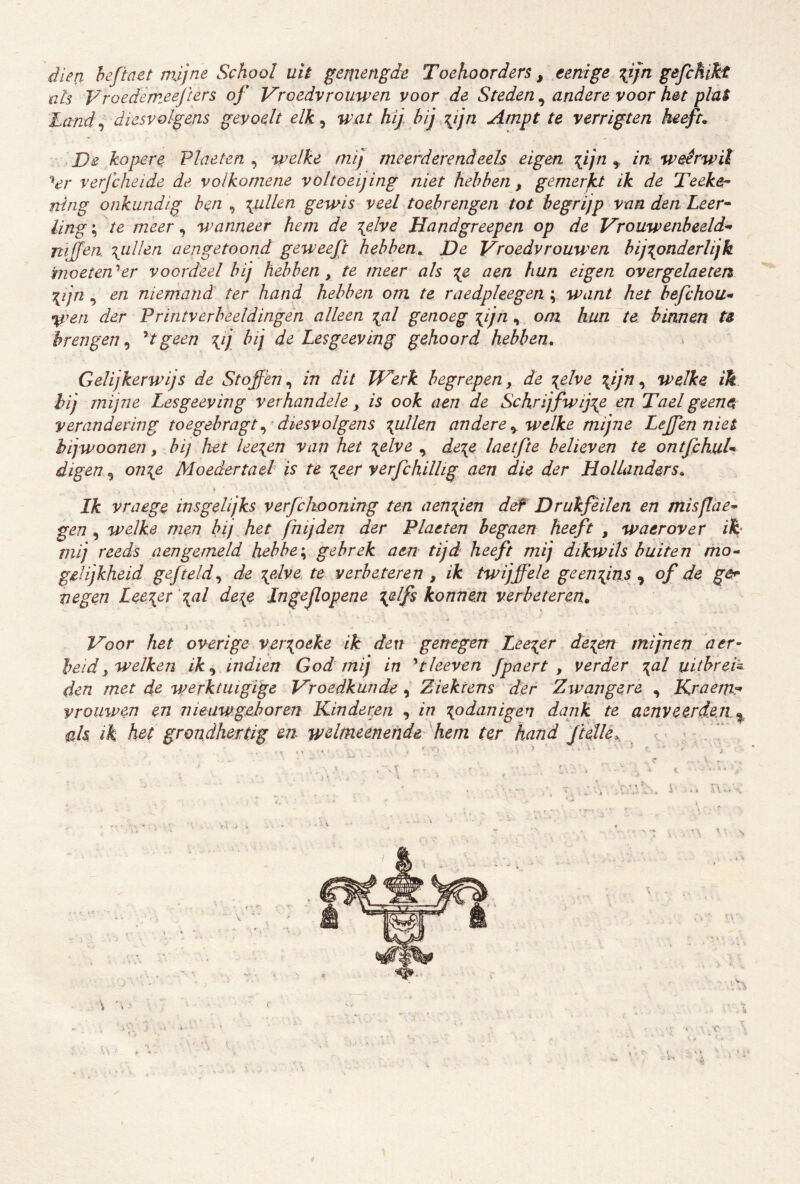 dien beſtaet mijne School uit gemengde Toehoorders, eenige zijn geſchikt
als Vroedemeeſters of Vroedvrouwen voor de Steden, andere voor het plat
Land, diesvolgens gevoelt elk, wat hij bij zijn Ampt te verrigten heeft.
De kopere Plaeten, welke mij meerderendeels eigen zijn, in weêrwil
'er verſcheide de volkomene voltoeijing niet hebben, gemerkt ik de Teeke-
ning onkundig ben, zullen gewis veel toebrengen tot begrijp van den Leer-
ling; te meer, wanneer hem de zelve Handgreepen op de Vrouwenbeeld-
niſſen zullen aengetoond geweeſt hebben. De Vroedvrouwen bijzonderlijk
moeten'er voordeel bij hebben, te meer als ze aen hun eigen overgelaeten
zijn, en niemand ter hand hebben om te raedpleegen; want het beſchou-
wen der Printverbeeldingen alleen zal genoeg zijn, om hun te binnen te
brengen, 't geen zij bij de Lesgeeving gehoord hebben.
Gelijkerwijs de Stoffen, in dit Werk begrepen, de zelve zijn, welke ik
bij mijne Lesgeeving verhandele, is ook aen de Schrijfwijze en Tael geene
verandering toegebragt, diesvolgens zullen andere, welke mijne Leſſen niet
bijwoonen, bij het leezen van het zelve, deze laetſte believen te ontſchul-
digen, onze Moedertael is te zeer verſchillig aen die der Hollanders.
Ik vraege insgelijks verſchooning ten aenzien der Drukfeilen en misſlae-
gen, welke men bij het ſnijden der Plaeten begaen heeft, waerover ik
mij reeds aengemeld hebbe; gebrek aen tijd heeft mij dikwils buiten mo-
gelijkheid geſteld, de zelve te verbeteren, ik twijffele geenzins, of de ge-
negen Leezer zal deze Ingeſlopene zelfs konnen verbeteren.
Voor het overige verzoeke ik den genegen Leezer dezen mijnen aer-
beid, welken ik, indien God mij in 't leeven ſpaert, verder zal uitbrei-
den met de werktuigige Vroedkunde, Ziektens der Zwangere, Kraem-
vrouwen en nieuwgeboren Kinderen, in zodanigen dank te aenveerden,
als ik het grondhertig en welmeenende hem ter hand ſtelle.